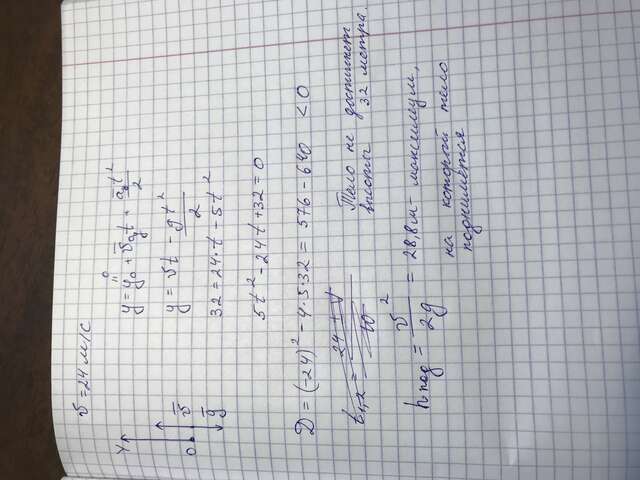 v = 24 м/с
Y
O
v̅
g̅
0
y = y₀ + v̅₀yt + a̅yt²/2
y = vt - gt²/2
32 = 24·t - 5t²
5t² - 24t + 32 = 0
D = (-24)² - 4·5·32 = 576 - 640 < 0
Тело не достигнет
высоты 32 метра.
hпод = v²/2g = 28,8м - максимум,
на который тело
поднимется